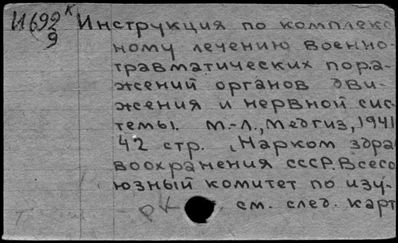 И692 К Инструкция по комплекс
9 ному лечению военно-
травматических пора-
жений органов дви-
жения и нервной сис-
темы. М.-Л., Медгиз, 1941
42 стр. (Нарком здра
воохранения СССР. Всесо
юзный комитет по изу-
см. след. карт